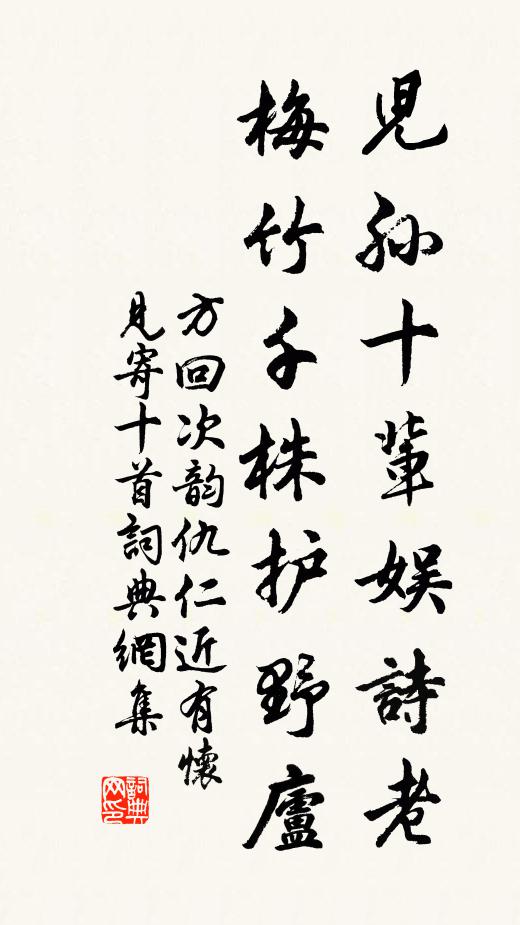 児孫十輩娛詩老
梅竹千株护野廬
方回次韵仇仁近有懷
見寄十首詞典網集
詞典
网印